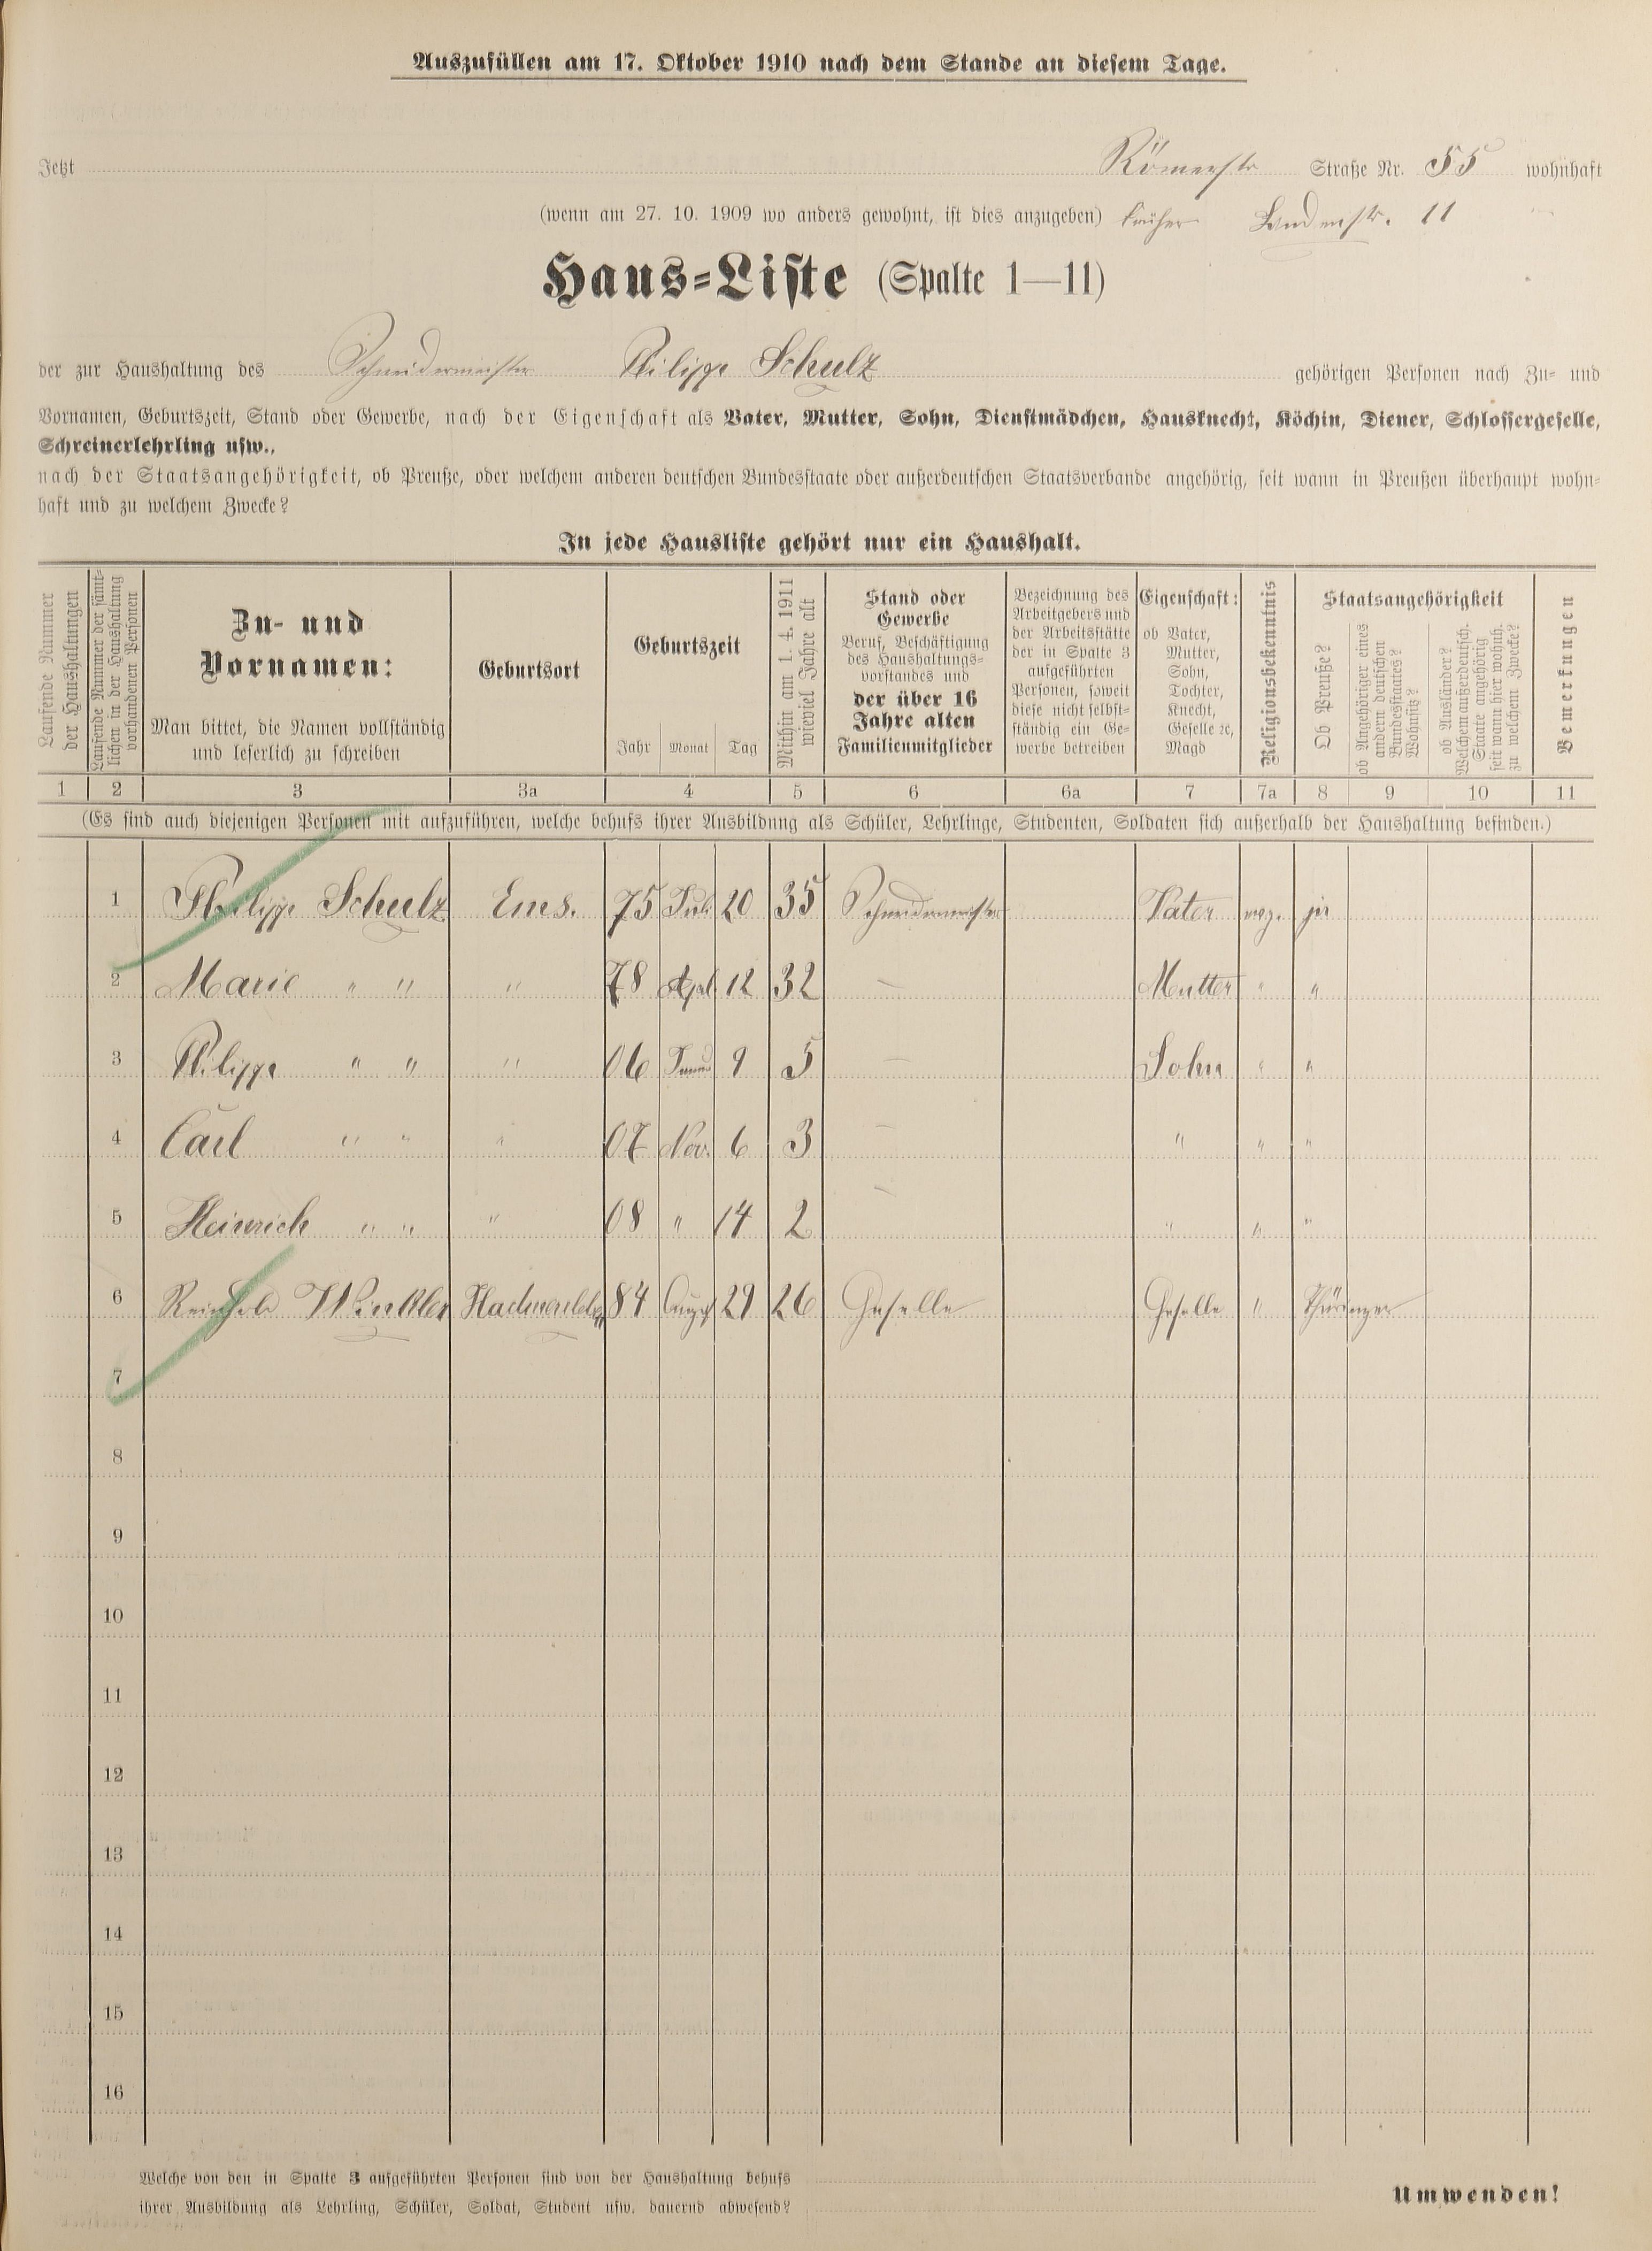 Auszufüllen am 17. Oktober 1910 nach dem Stande an diesem Tage.
Jetzt Römerstr Straße Nr. 55 wohnhaft
(wenn am 27. 10. 1909 wo anders gewohnt, ist dies anzugeben) früher 11
Haus-Liste (Spalte 1—11)
der zur Haushaltung des Schneidermeister Philipp Schulz gehörigen Personen nach Zu- und
Vornamen, Geburtszeit, Stand oder Gewerbe, nach der Eigenschaft als Vater, Mutter, Sohn, Dienstmädchen, Hausknecht, Köchin, Diener, Schlossergeselle,
Schreinerlehrling usw.,
nach der Staatsangehörigkeit, ob Preuße, oder welchem anderen deutschen Bundesstaate oder außerdeutschen Staatsverbande angehörig, seit wann in Preußen überhaupt wohn-
haft und zu welchem Zwecke?
In jede Hausliste gehört nur ein Haushalt.
Laufende Nummer
der Haushaltungen
Laufende Nummer der sämt-
lichen in der Haushaltung
vorhandenen Personen
Zu- und
Vornamen:
Man bittet, die Namen vollständig
und leserlich zu schreiben
Geburtsort
Geburtszeit
Jahr Monat Tag
Mithin am 1. 4. 1911
wieviel Jahre alt
Stand oder
Gewerbe
Beruf, Beschäftigung
des Haushaltungs-
vorstandes und
der über 16
Jahre alten
Familienmitglieder
Bezeichnung des
Arbeitgebers und
der Arbeitsstätte
der in Spalte 3
aufgeführten
Personen, soweit
diese nicht selbst-
ständig ein Ge-
werbe betreiben
Eigenschaft:
ob Vater,
Mutter,
Sohn,
Tochter,
Knecht,
Geselle ꝛc,
Magd
Religionsbekenntnis
Staatsangehörigkeit
Ob Preuße?
ob Angehöriger eines
andern deutschen
Bundesstaates?
Wohnsitz?
ob Ausländer?
Welchem außerdeutsch.
Staate angehörig
seit wann hier wohnh.
zu welchem Zwecke?
Bemerkungen
1 2 3 3a 4 5 6 6a 7 7a 8 9 10 11
(Es sind auch diejenigen Personen mit aufzuführen, welche behufs ihrer Ausbildung als Schüler, Lehrlinge, Studenten, Soldaten sich außerhalb der Haushaltung befinden.)
1 Philipp Schulz Ems. 75 Juli 20 35 Schneidermeister Vater evg. ja
2 Marie " " " 78 April 12 32 — Mutter " "
3 Philipp " " " 06 Januar 9 5 — Sohn " "
4 Carl " " " 07 Nov. 6 3 — " " "
5 Heinrich " " " 08 " 14 2 — " " "
6 Reinhold Winkler 84 August 29 26 Geselle Geselle " Thüringer
7
8
9
10
11
12
13
14
15
16
Welche von den in Spalte 3 aufgeführten Personen sind von der Haushaltung behufs
ihrer Ausbildung als Lehrling, Schüler, Soldat, Student usw. dauernd abwesend?
Umwenden!